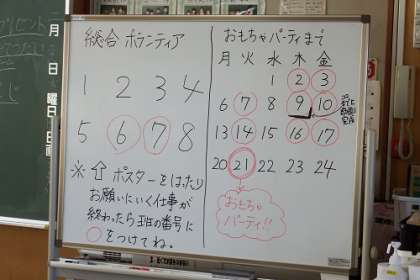 総合 ボランティア
1 2 3 4
5 6 7 8
※⇧ポスターをはったり
お願いにいく仕事が
終わったら班の番号に
○をつけてね。
おもちゃパーティまで
月 火 水 木 金
1 2 3
6 7 8 9 10
13 14 15 16 17
20 21 22 23 24
おもちゃ
パーティ!!
月
日
曜日